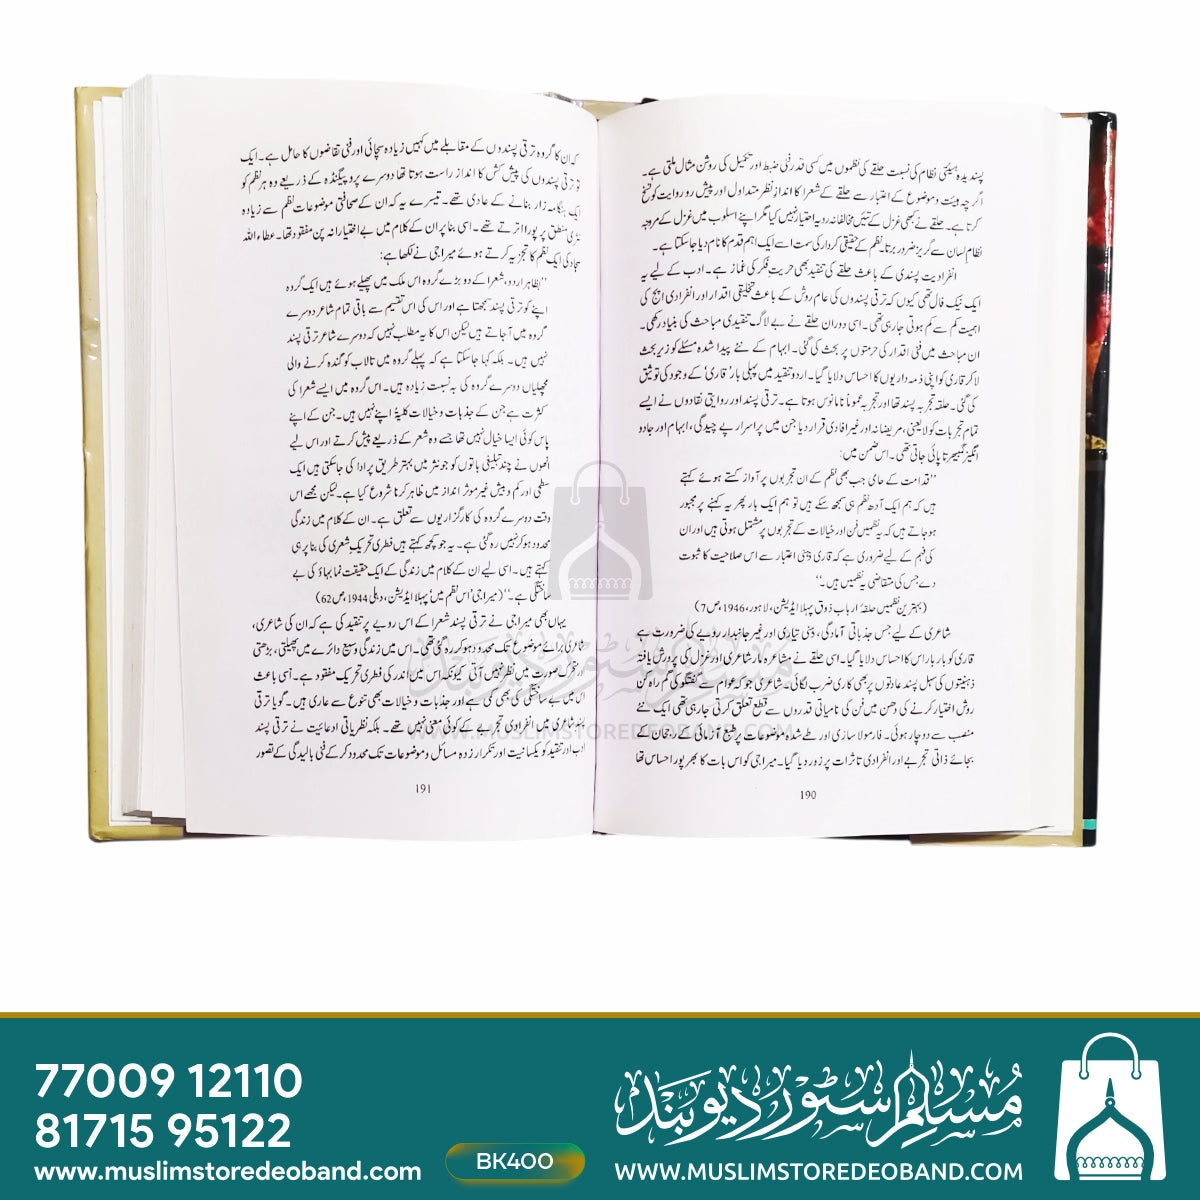 پسندیدہ ہیئتی نظام کی نسبت حلقے کی نظموں میں کسی قدر فنی ضبط اور تکمیل کی روشن مثال ملتی ہے۔
اگرچہ ہیئت و موضوع کے اعتبار سے حلقے کے شعرا کا اندازِ نظر متداول اور پیش رو روایت کو فسخ
کرتا ہے۔ حلقے نے کبھی غزل کے تئیں مخالفانہ رویہ اختیار نہیں کیا مگر اپنے اسلوب میں غزل کے مروجہ
نظام لسان سے گریز ضرور برتا۔ نظم کے حقیقی کردار کی سمت اسے ایک اہم قدم کا نام دیا جا سکتا ہے۔
انفرادیت پسندی کے باعث حلقے کی تنقید بھی حریتِ فکر کی غماز ہے۔ ادب کے لیے یہ
ایک نیک فال تھی کیوں کہ ترقی پسندوں کی عام روش کے باعث تخلیقی اقدار اور انفرادی اپج کی
اہمیت کم سے کم ہوتی جا رہی تھی۔ اسی دوران حلقے نے بے لاگ تنقیدی مباحث کی بنیاد رکھی۔
ان مباحث میں فنی اقدار کی حرمتوں پر بحث کی گئی۔ ابہام کے نئے پیدا شدہ مسئلے کو زیر بحث
لا کر قاری کو اپنی ذمہ داریوں کا احساس دلایا گیا۔ اردو تنقید میں پہلی بار 'قاری' کے وجود کی توثیق
کی گئی۔ حلقہ تجربہ پسند تھا اور تجربہ عموماً نامانوس ہوتا ہے۔ ترقی پسند اور روایتی نقادوں نے ایسے
تمام تجربات کو لایعنی، مریضانہ اور غیر افادی قرار دیا جن میں پراسرار پے چیدگی، ابہام اور جادو
انگیز گمبھیرتا پائی جاتی تھی۔ اس ضمن میں:
"قدامت کے حامی جب بھی نظم کے ان تجربوں پر آواز کستے ہوئے کہتے
ہیں کہ ہم ایک آدھ نظم ہی سمجھ سکے ہیں تو ہم ایک بار پھر یہ کہنے پر مجبور
ہو جاتے ہیں کہ یہ نظمیں فن اور خیالات کے تجربوں پر مشتمل ہوتی ہیں اور ان
کی فہم کے لیے ضروری ہے کہ قاری ذہنی اعتبار سے اس صلاحیت کا ثبوت
دے جس کی متقاضی یہ نظمیں ہیں۔"
(بہترین نظمیں حلقۂ ارباب ذوق پہلا ایڈیشن، لاہور، 1946، ص 7)
شاعری کے لیے جس جذباتی آمادگی، ذہنی تیاری اور غیر جانبدار رویے کی ضرورت ہے
قاری کو بار بار اس کا احساس دلایا گیا۔ اسی حلقے نے مشاعرہ مار شاعری اور غزل کی پرورش یافتہ
ذہنیتوں کی سہل پسند عادتوں پر بھی کاری ضرب لگائی۔ شاعری جو کہ عوام سے گفتگو کی گم راہ کن
روش اختیار کرنے کی دھن میں فن کی نامیاتی قدروں سے قطع تعلق کرتی جا رہی تھی ایک نئے
منصب سے دوچار ہوئی۔ فارمولا سازی اور طے شدہ موضوعات پر طبع آزمائی کے رجحان کے
بجائے ذاتی تجربے اور انفرادی تاثرات پر زور دیا گیا۔ میرا جی کو اس بات کا بھرپور احساس تھا
190
کہ ان کا گروہ ترقی پسندوں کے مقابلے میں کہیں زیادہ سچائی اور فنی تقاضوں کا حامل ہے۔ ایک
تو ترقی پسندوں کی پیش کش کا انداز راست ہوتا تھا دوسرے پروپیگنڈہ کے ذریعے وہ ہر نظم کو
ایک ہنگامہ زار بنانے کے عادی تھے۔ تیسرے یہ کہ ان کے صحافتی موضوعات نظم سے زیادہ
نثری منطق پر پورا اترتے تھے۔ اسی بنا پر ان کے کلام میں بے اختیارانہ پن مفقود تھا۔ عطاء اللہ
سجاد کی ایک نظم کا تجزیہ کرتے ہوئے میرا جی نے لکھا ہے:
"بظاہر اردو شعرا کے دو بڑے گروہ اس ملک میں پھیلے ہوئے ہیں ایک گروہ
اپنے کو ترقی پسند سمجھتا ہے اور اس کی اس تقسیم سے باقی تمام شاعر دوسرے
گروہ میں آ جاتے ہیں لیکن اس کا یہ مطلب نہیں کہ دوسرے شاعر ترقی پسند
نہیں ہیں۔ بلکہ کہا جا سکتا ہے کہ پہلے گروہ میں تالاب کو گندہ کرنے والی
مچھلیاں دوسرے گروہ کی بہ نسبت زیادہ ہیں۔ اس گروہ میں ایسے شعرا کی
کثرت ہے جن کے جذبات و خیالات کلیۃً اپنے نہیں ہیں۔ جن کے اپنے
پاس کوئی ایسا خیال نہیں تھا جسے وہ شعر کے ذریعے پیش کرتے اور اس لیے
انھوں نے چند تبلیغی باتوں کو جو نثر میں بہتر طریق پر ادا کی جا سکتی ہیں ایک
سطحی اور کم و بیش غیر موثر انداز میں ظاہر کرنا شروع کیا ہے۔ لیکن مجھے اس
وقت دوسرے گروہ کی کارگزاریوں سے تعلق ہے۔ ان کے کلام میں زندگی
محدود ہو کر نہیں رہ گئی ہے۔ یہ جو کچھ کہتے ہیں فطری تحریک شعری کی بنا پر ہی
کہتے ہیں۔ اسی لیے ان کے کلام میں زندگی کے ایک حقیقت نما بہاؤ کی بے
ساختگی ہے۔" (میرا جی 'اس نظم میں' پہلا ایڈیشن، دہلی 1944، ص 62)
یہاں بھی میرا جی نے ترقی پسند شعرا کے اس رویے پر تنقید کی ہے کہ ان کی شاعری،
شاعری برائے موضوع تک محدود ہو کر رہ گئی تھی۔ اس میں زندگی وسیع دائرے میں پھیلتی، بڑھتی
اور متحرک صورت میں نظر نہیں آتی کیونکہ اس میں اندر کی فطری تحریک مفقود ہے۔ اسی باعث
اس میں بے ساختگی کی بھی کمی ہے اور جذبات و خیالات بھی تنوع سے عاری ہیں۔ گویا ترقی
پسند شاعری میں انفرادی تجربے کے کوئی معنی نہیں تھے۔ بلکہ نظریاتی ادعائیت نے ترقی پسند
ادب اور تنقید کو یکسانیت اور تکرار زدہ مسائل و موضوعات تک محدود کر کے فنی بالیدگی کے تصور
191
مسلم سٹور دیوبند
WWW.MUSLIMSTOREDEOBAND.COM
77009 12110
81715 95122
www.muslimstoredeoband.com
BK400
مسلم سٹور دیوبند
WWW.MUSLIMSTOREDEOBAND.COM